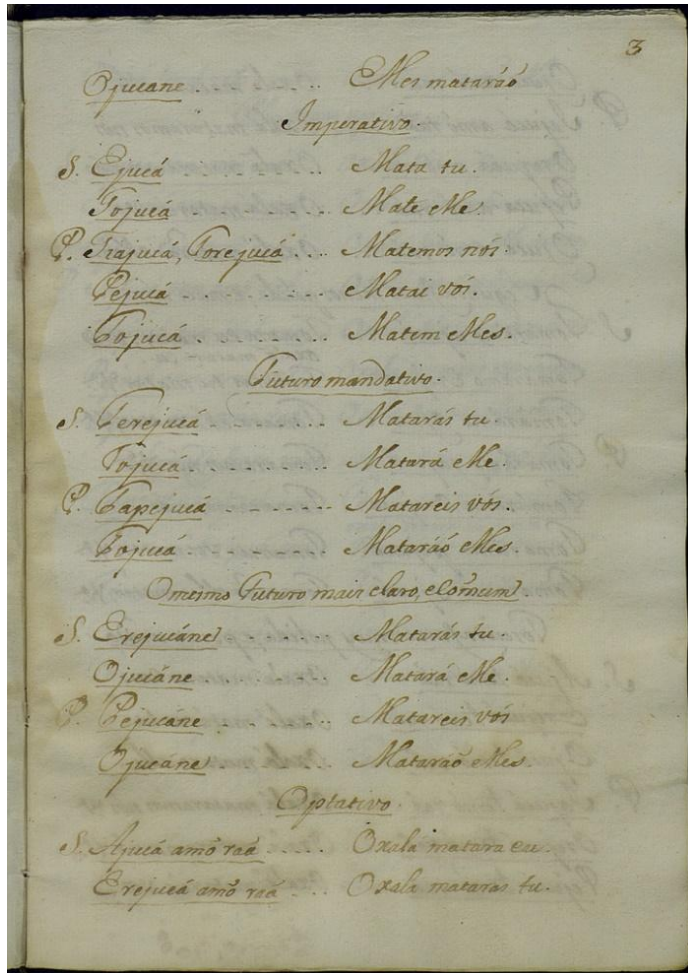 3
Ojucane ..... Elles mataráõ
Imperativo.
S. Ejucá ..... Mata tu.
Tojucá ..... Mate elle.
P. Tiajucá, Torejucá .... Matemos nós.
Pejucá ..... Matai vós.
Tojucá ..... Matem elles.
Futuro mandativo.
S. Terejucá ..... Matarás tu
Tojucá ..... Matará elle
P. Tapejucá -------- Matareis vós.
Tojucá ..... Mataráõ elles.
O mesmo Futuro mais claro, e cõmum.
S. Erejucáne ..... Matarás tu.
Ojucáne ..... Matará elle.
P. Pejucáne ..... Matareis vós
Ojucáne ..... Mataráõ elles.
Optativo.
S. Ajucá amõ raá ..... Oxalá matara eu.
Erejucá amõ raá .... Oxalá mataras tu.